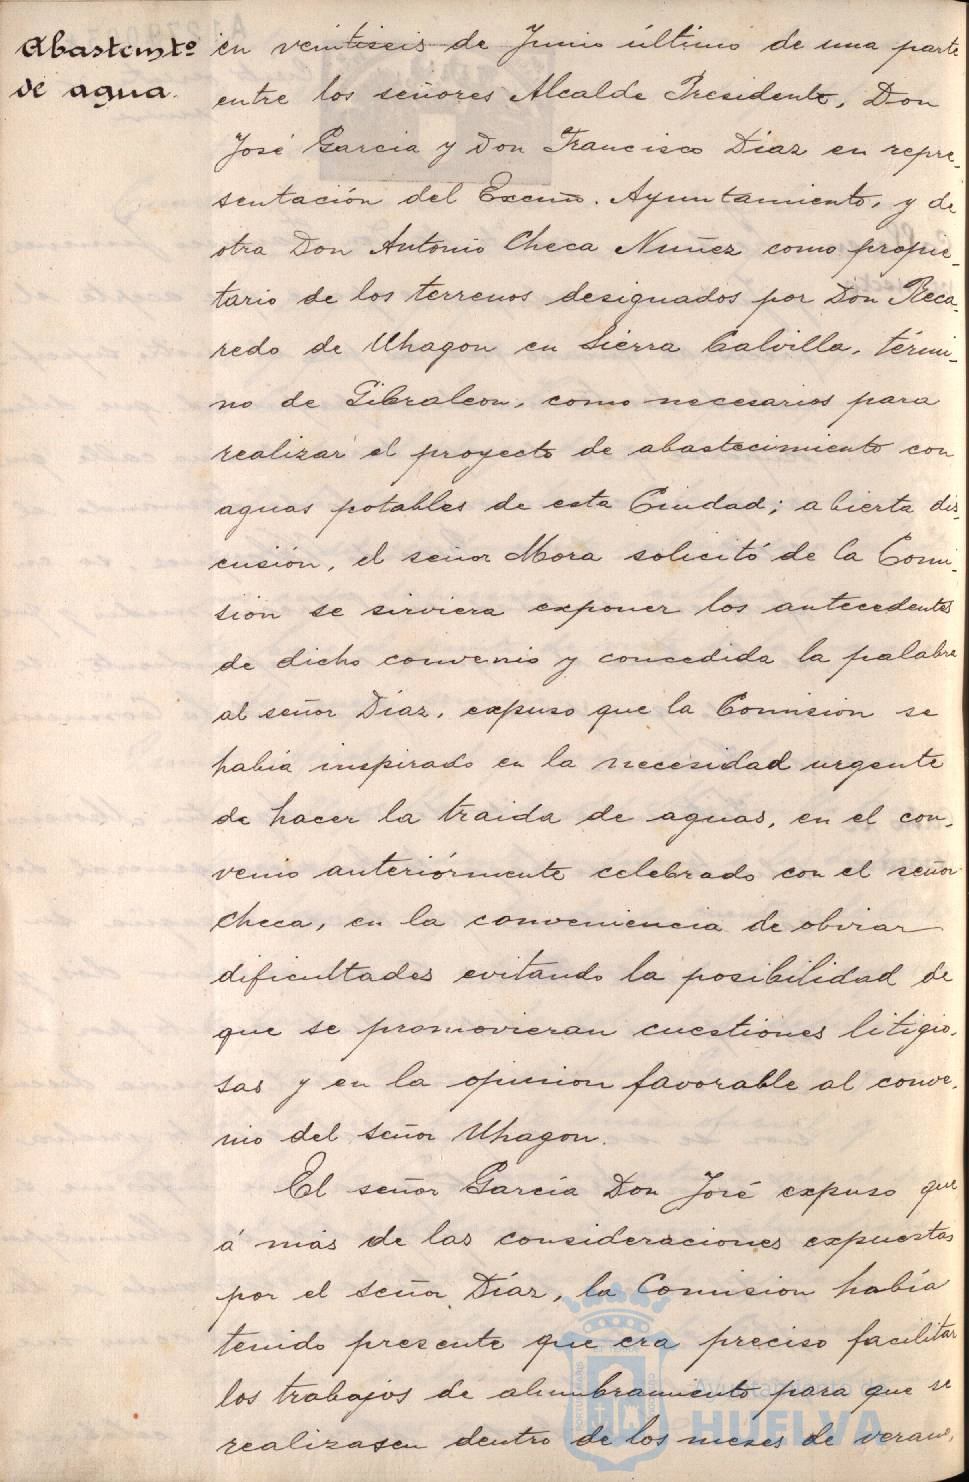 Abastemto
de agua.
en veintiseis de Junio último de una parte
entre los señores Alcalde Presidente, Don
José Garcia y Don Francisco Díaz en repre-
sentación del Excmo. Ayuntamiento, y de
otra Don Antonio Checa Nuñez como propie-
tario de los terrenos designados por Don Reca-
redo de Uhagon en Sierra Calvilla, térmi-
no de Gibraleon, como necesarios para
realizar el proyecto de abastecimiento con
aguas potables de esta Ciudad; abierta dis-
cusión, el señor Mora solicitó de la Comi-
sión se sirviera exponer los antecedentes
de dicho convenio y concedida la palabra
al señor Díaz, expuso que la Comision se
había inspirado en la necesidad urgente
de hacer la traida de aguas, en el con-
venio anteriórmente celebrado con el señor
Checa, en la conveniencia de obviar
dificultades evitando la posibilidad de
que se promovieran cuestiones litigio-
sas y en la opinion favorable al conve-
nio del señor Uhagon.
El señor García Don José expuso que
á más de las consideraciones expuestas
por el señor Díaz, la Comision había
tenido presente que era preciso facilitar
los trabajos de alumbramiento para que se
realizasen dentro de los meses de verano,
Ayuntamiento de
HUELVA